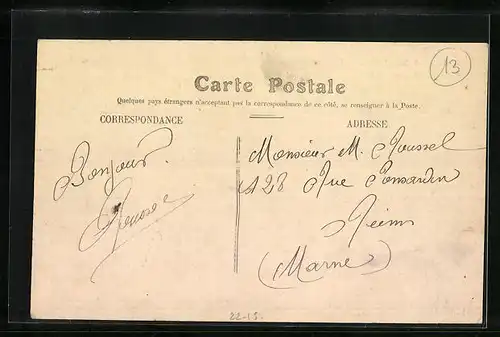 13
Carte Postale
Quelques pays étrangers n'acceptant pas la correspondance de ce côté, se renseigner à la Poste.
CORRESPONDANCE
ADRESSE
Bonjour.
Monsieur M. Roussel
128 Rue Ponsardin
Reims
(Marne)
22-15.